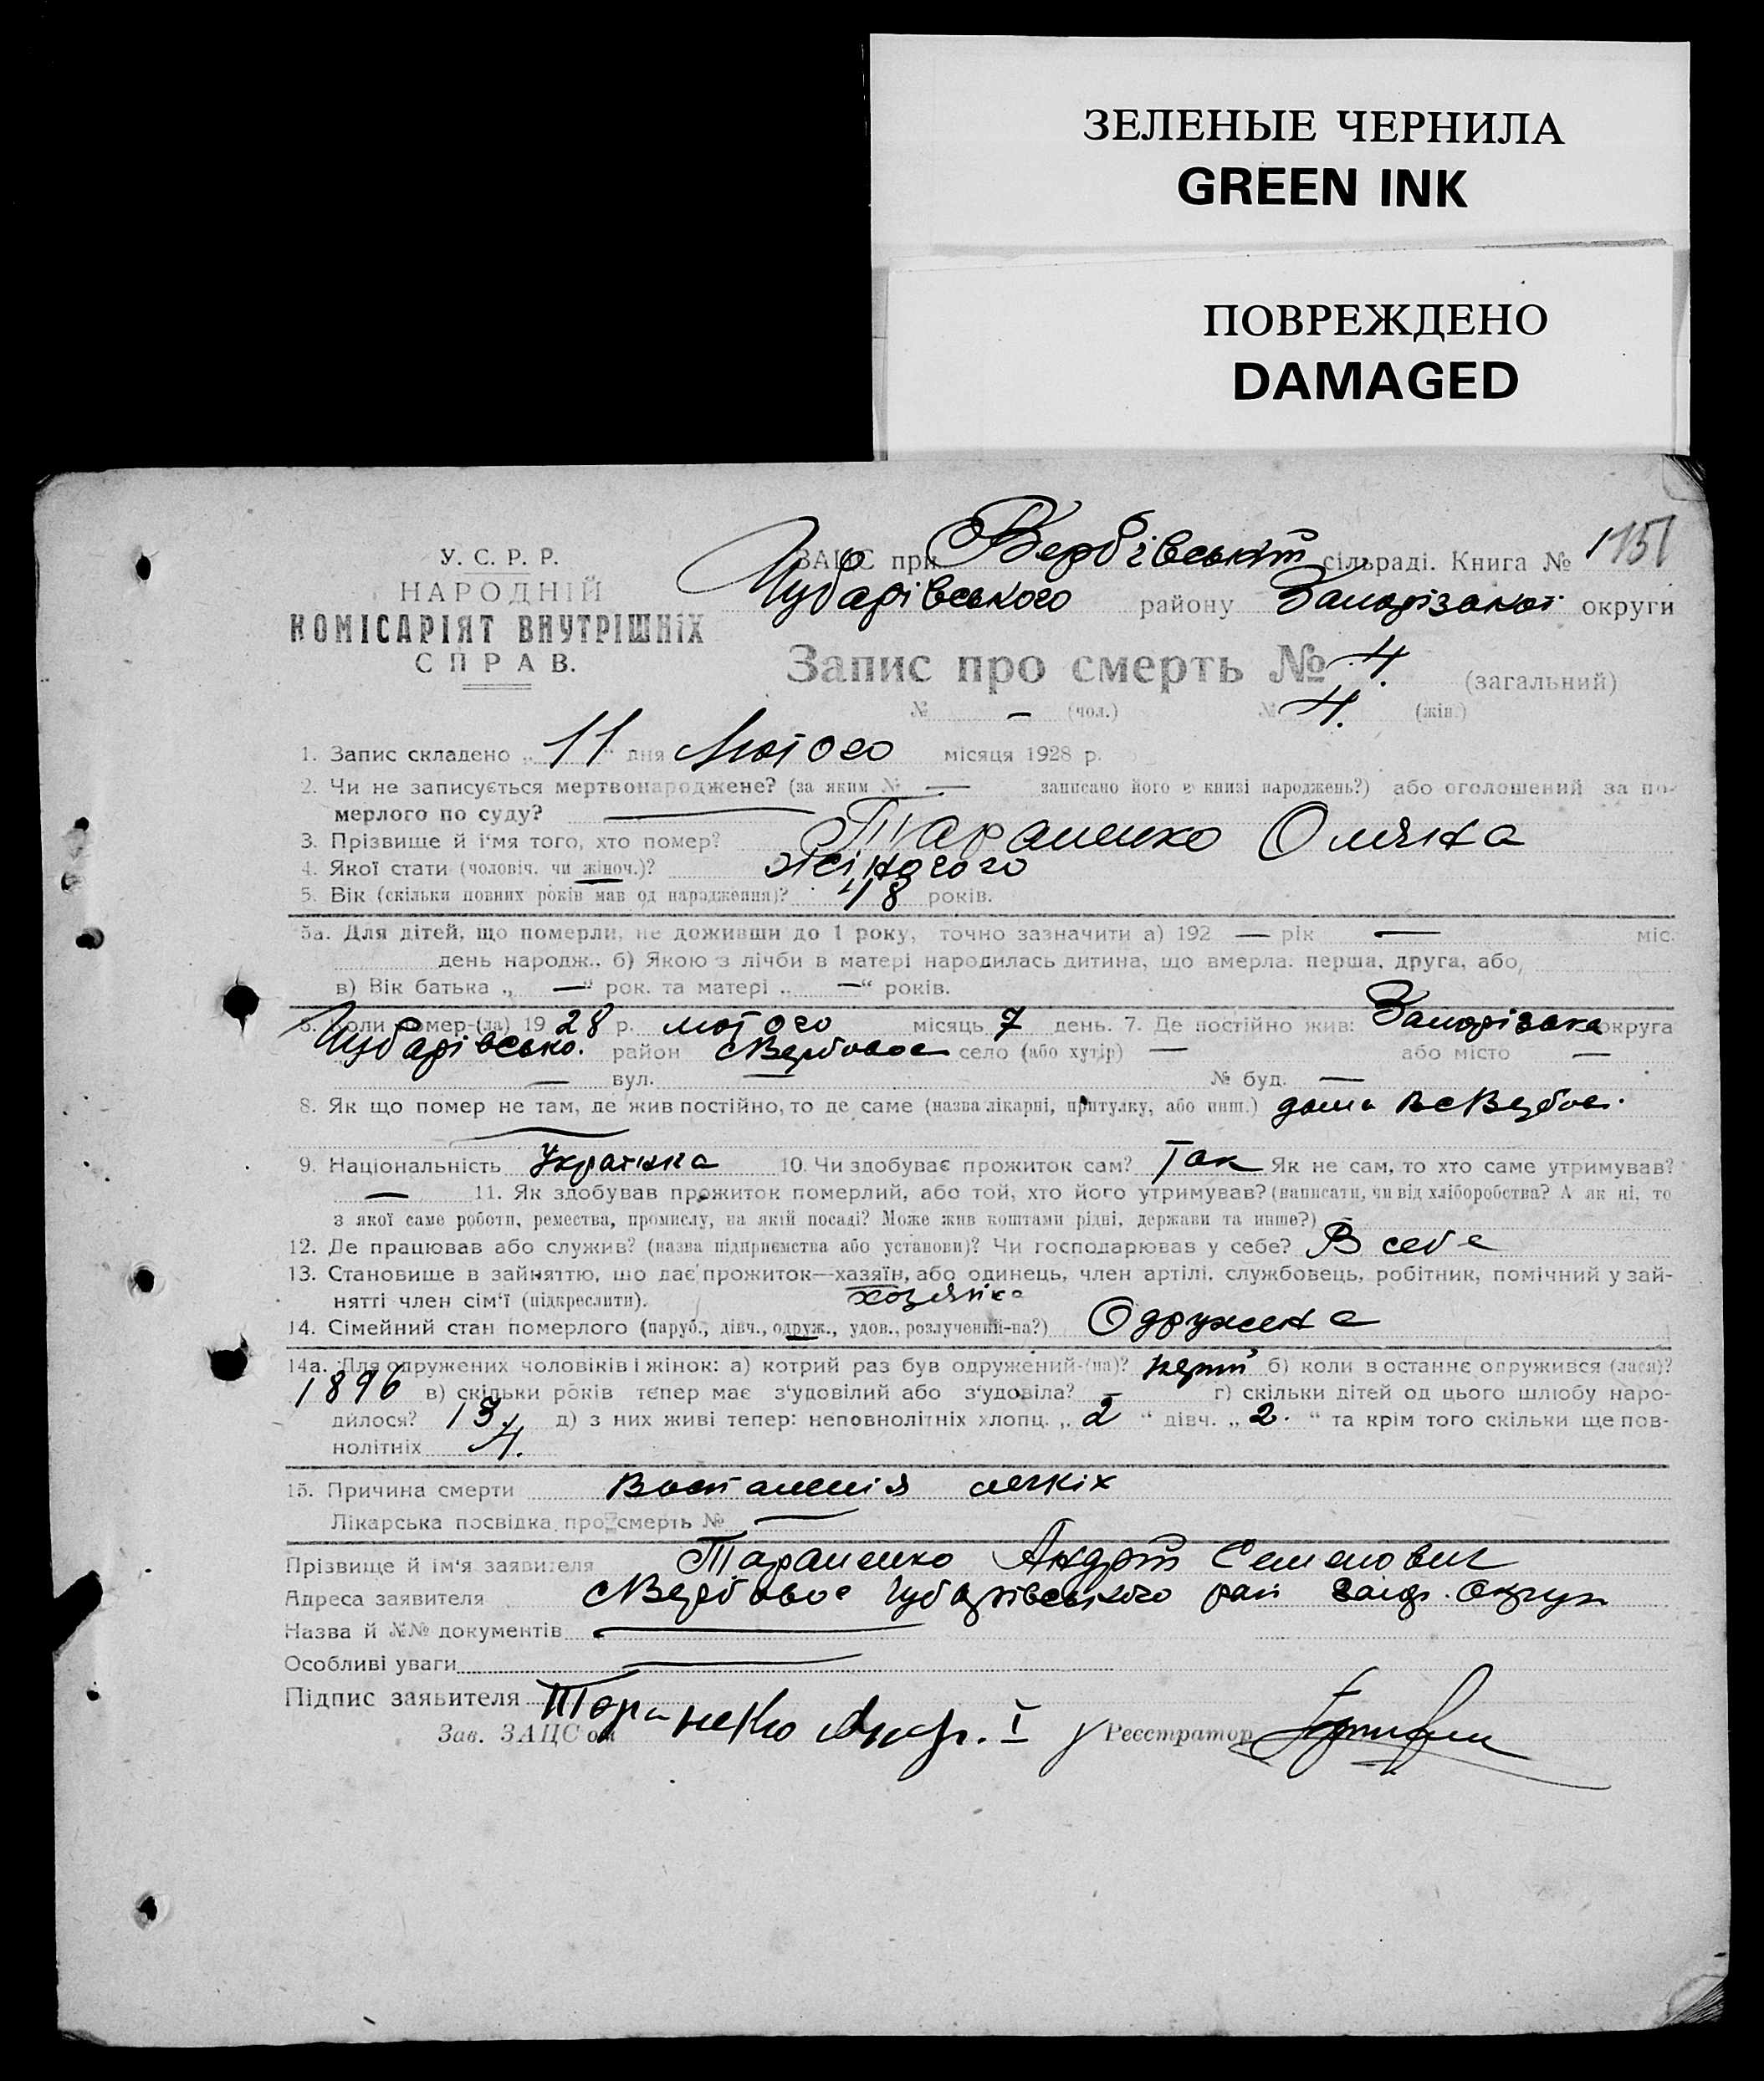 ЗЕЛЕНЫЕ ЧЕРНИЛА
GREEN INK
ПОВРЕЖДЕНО
DAMAGED
У. С. Р. Р.
НАРОДНІЙ
КОМІСАРІЯТ ВНУТРІШНІХ
СПРАВ.
ЗАЦС при Вербівській сільраді. Книга № 1 151
Чубарівського району Запорізької округи
Запис про смерть № 4. (загальний)
№ — (чол.) № 4. (жін.)
1. Запис складено „ 11 " дня Лютого місяця 1928 р.
2. Чи не записується мертвонароджене? (за яким № — записано його в книзі народжень?) або оголошений за по-
мерлого по суду? —
3. Прізвище й і'мя того, хто помер? Тараненко Оляна
4. Якої стати (чоловіч. чи жіноч.)? жіночого
5. Вік (скільки повних років мав од народження)? 48 років.
5а. Для дітей, що померли, не доживши до 1 року, точно зазначити а) 192 — рік — міс.
день народж., б) Якою з лічби в матері народилась дитина, що вмерла: перша, друга, або,
в) Вік батька „ — " рок. та матері „ — " років.
6. Коли помер-(ла) 19 28 р. лютого місяць 7 день. 7. Де постійно жив: Запорізька округа
Чубарівсько. район с Вербовое село (або хутір) — або місто —
— вул. — № буд. —
8. Як що помер не там, де жив постійно, то де саме (назва лікарні, притулку, або инш.) дома в с Вербов.
9. Національність Українка 10. Чи здобуває прожиток сам? Так Як не сам, то хто саме утримував?
— 11. Як здобував прожиток померлий, або той, хто його утримував? (написати, чи від хліборобства? А як ні, то
з якої саме роботи, ремества, промислу, на якій посаді? Може жив коштами рідні, держави та инше?) —
12. Де працював або служив? (назва підприємства або установи)? Чи господарював у себе? В себе
13. Становище в зайняттю, що дає прожиток—хазяїн, або одинець, член артілі, службовець, робітник, помічний у зай-
нятті член сім'ї (підкреслити). хозяйка
14. Сімейний стан померлого (паруб., дівч., одруж., удов., розлучений-на?) Одружена
14а. Для одружених чоловіків і жінок: а) котрий раз був одружений-(на)? перш б) коли в останнє одружився (лася)?
1896 в) скільки років тепер має з'удовілий або з'удовіла? — г) скільки дітей од цього шлюбу наро-
дилося? 13. д) з них живі тепер: неповнолітніх хлопц. „ 2 " дівч. „ 2. " та крім того скільки ще пов-
нолітніх 4.
15. Причина смерти Воспаления легкіх
Лікарська посвідка про смерть № —
Прізвище й ім'я заявителя Тараненко Андрій Семенович
Адреса заявителя с Вербовое Чубарівського рай Запор. округи
Назва й №№ документів —
Особливі уваги —
Підпис заявителя Таранеко Андр.
Зав. ЗАЦС ом Реєстратор